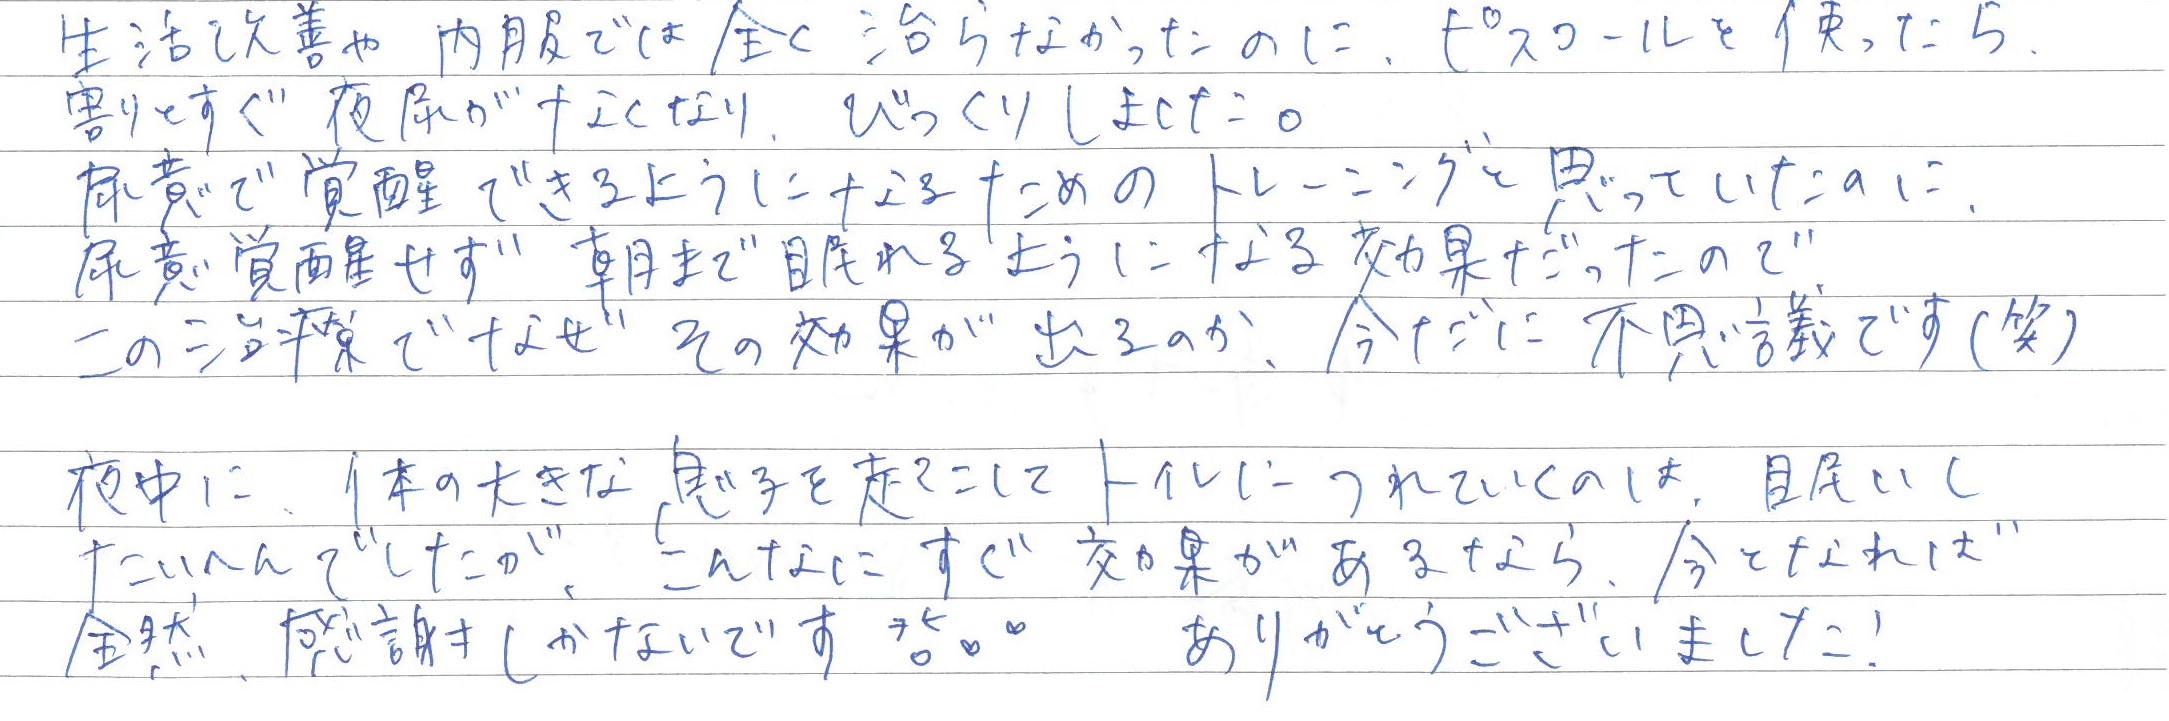 生活改善や内服では全く治らなかったのに、ピスコールを使ったら、
割りとすぐ夜尿がなくなり、びっくりしました。
尿意で覚醒できるようになるためのトレーニングと思っていたのに、
尿意覚醒せず朝まで眠れるようになる効果だったので、
この治療でなぜその効果が出るのか、今だに不思議です(笑)
夜中に、体の大きな息子を起こしてトイレにつれていくのは、眠いし
たいへんでしたが、こんなにすぐ効果があるなら、今となれば
全然、感謝しかないです。 ありがとうございました!